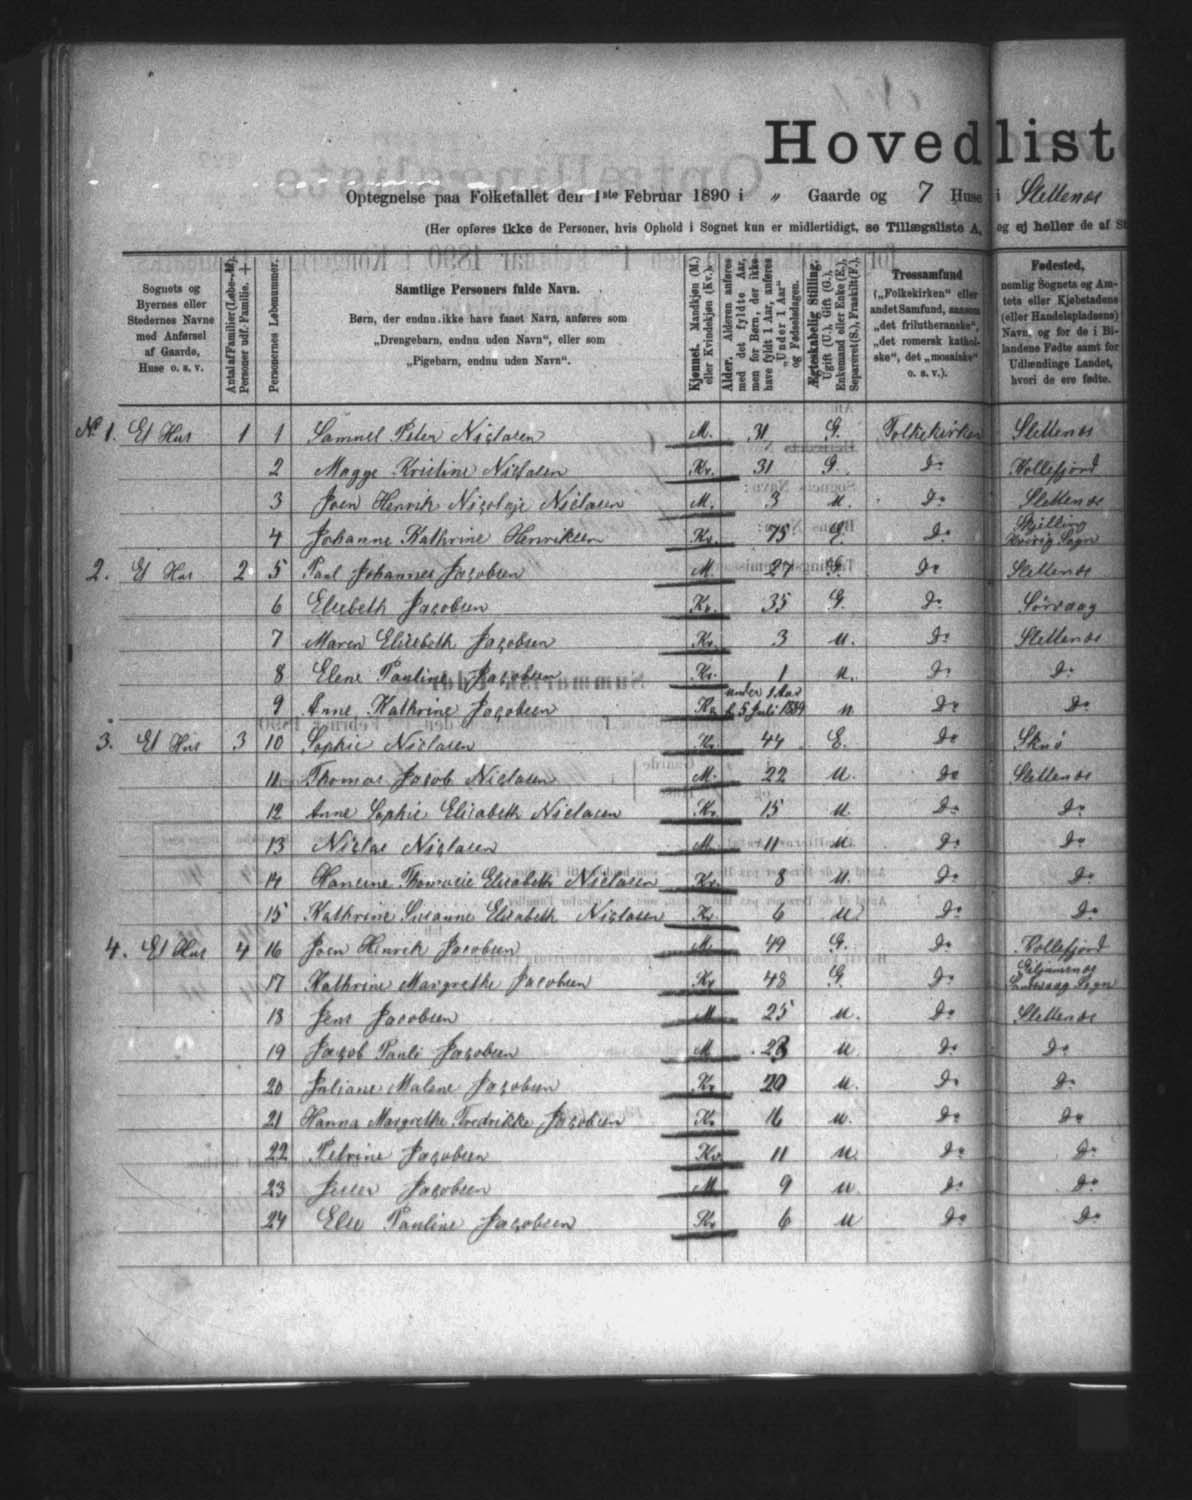 Hovedliste
Optegnelse paa Folketallet den 1ste Februar 1890 i „ Gaarde og 7 Huse i Slettenæs
(Her opføres ikke de Personer, hvis Ophold i Sognet kun er midlertidigt, se Tillægsliste A, og ej heller de af St
Sognets og Byernes eller Stedernes Navne med Anførsel af Gaarde, Huse o. s. v.
Antal af Familier (Løbe-№). Personer udf. Familie. +
Personernes Løbenummer.
Samtlige Personers fulde Navn.
Børn, der endnu ikke have faaet Navn, anføres som „Drengebarn, endnu uden Navn“, eller som „Pigebarn, endnu uden Navn“.
Kjønnet. Mandkjøn (M.) eller Kvindekjøn (Kv.).
Alder. Alderen anføres med det fyldte Aar, men for Børn, der ikke have fyldt 1 Aar, anføres „Under 1 Aar“ og Fødselsdagen.
Ægteskabelig Stilling. Ugift (U.), Gift (G.), Enkemand eller Enke (E.), Separeret (S.), Fraskilt (F.).
Trossamfund („Folkekirken“ eller andet Samfund, saasom „det frilutheranske“, „det romersk katholske“, det „mosaiske“ o. s. v.).
Fødested, nemlig Sognets og Amtets eller Kjøbstadens (eller Handelspladsens) Navn, og for de i Bilandene Fødte samt for Udlændinge Landet, hvori de ere fødte.
№ 1. Et Hus 1 1 Samuel Peter Niclasen M. 31 G. Folkekirken Slettenæs
2 Magge Kristine Niclasen Kv. 31 G. Do Kollefjord
3 Joen Henrik Nicolaje Niclasen M. 3 U. Do Slettenæs
4 Johanne Kathrine Henriksen Kv. 75 E. Do Skjelling Kvivig Sogn
2. Et Hus 2 5 Paul Johannes Jacobsen M. 27 G. Do Slettenæs
6 Elsebeth Jacobsen Kv. 35 G. Do Sørvaag
7 Maren Elisebeth Jacobsen Kv. 3 U. Do Slettenæs
8 Elene Pauline Jacobsen Kv. 1 U. Do Do
9 Anne Kathrine Jacobsen Kv. under 1 Aar f. 5 Juli 1889 U Do Do
3. Et Hus 3 10 Sophie Niclasen Kv. 44 E. Do Skuø
11 Thomas Jacob Niclasen M. 22 U. Do Slettenæs
12 Anne Sophie Elisabeth Niclasen Kv. 15 U. Do Do
13 Niclas Niclasen M. 11 U. Do Do
14 Hansine Thomasie Elisabeth Niclasen Kv. 8 U. Do Do
15 Kathrine Susanne Elisabeth Niclasen Kv. 6 U Do Do
4. Et Hus 4 16 Joen Hinrik Jacobsen M. 49 G. Do Kollefjord
17 Kathrine Margrethe Jacobsen Kv 48 G. Do Sogn
18 Jens Jacobsen M 25 U. Do Slettenæs
19 Jacob Pauli Jacobsen M 23 U Do Do
20 Juliane Malene Jacobsen Kv 20 U. Do Do
21 Hanna Margrethe Fredrikke Jacobsen Kv 16 U. Do Do
22 Petrine Jacobsen Kv 11 U. Do Do
23 Jesser Jacobsen M 9 U. Do Do
24 Else Pauline Jacobsen Kv 6 U Do Do